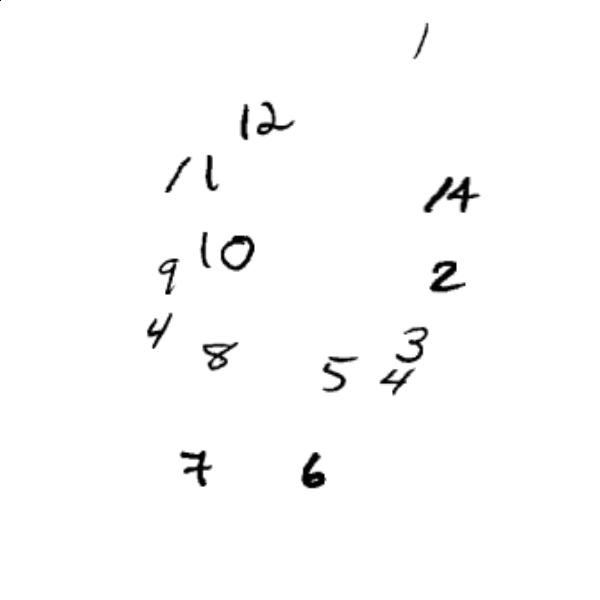 1
12
11
14
10
9
2
4
8
3
5
4
7
6